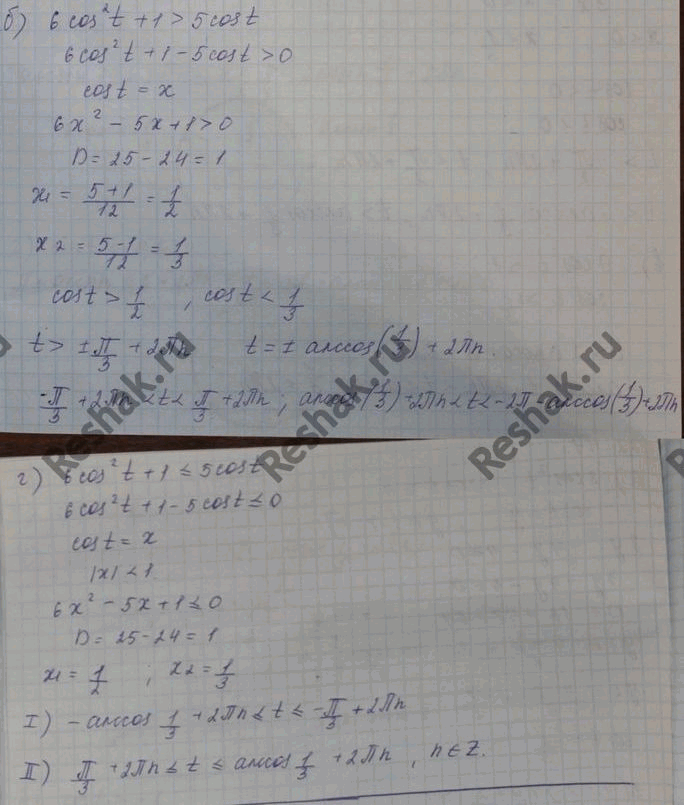 б) 6 cos²t + 1 > 5 cost
6 cos²t + 1 - 5 cost > 0
cost = x
6x² - 5x + 1 > 0
D = 25 - 24 = 1
x₁ = (5+1)/12 = 1/2
x₂ = (5-1)/12 = 1/3
cost > 1/2 , cost < 1/3
t > ±π/3 + 2πn t = ± arccos(1/3) + 2πn.
-π/3 + 2πn < t < π/3 + 2πn ; arccos(1/3) + 2πn < t < -2π - arccos(1/3) + 2πn
Reshak.ru Reshak.ru Reshak.ru
г) 6 cos²t + 1 ≤ 5 cost
6 cos²t + 1 - 5 cost ≤ 0
cost = x
|x| < 1
6x² - 5x + 1 ≤ 0
D = 25 - 24 = 1
x₁ = 1/2 ; x₂ = 1/3
I) - arccos 1/3 + 2πn ≤ t ≤ -π/3 + 2πn
II) π/3 + 2πn ≤ t ≤ arccos 1/3 + 2πn , n ∈ Z.